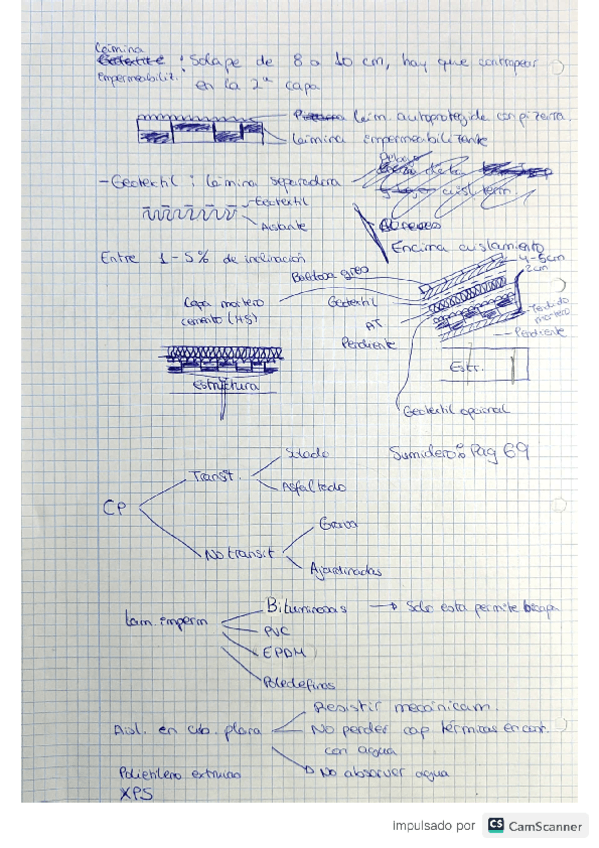 Lámina
impermeabiliz. : Solape de 8 a 10 cm, hay que contrapear
en la 2ª capa
Lám. autoprotegida con pizarra
Lámina impermeabilizante
- Geotextil : lámina separadora
aisl term.
Geotextil
Aislante
Encima aislamiento
Entre 1-5% de inclinación
4-5cm
2cm
Baldosa gres
Capa mortero
cemento (HS)
Geotextil
AT
Pendiente
mortero
Pendiente
Estr.
estructura
Geotextil opcional
Sumideros Pag 69
CP
Transit.
Solado
Asfaltado
No transit
Grava
Ajardinadas
Lam. imperm
Bituminosas → Solo esta permite bicapa
PVC
EPDM
Poliolefinas
Aisl. en cub. plana
Resistir mecánicam.
No perder cap térmicas en cont.
con agua
No absorver agua
Polietileno extruido
XPS
Impulsado por CS CamScanner